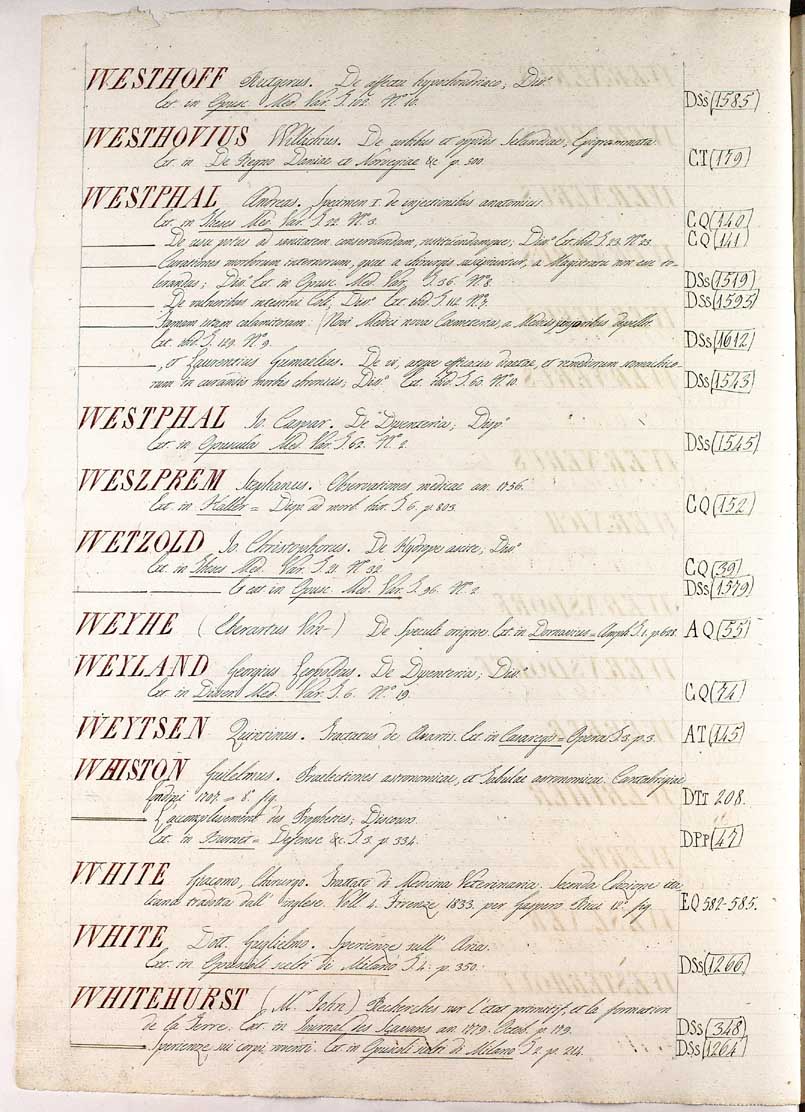 WESTHOFF Rutgerus. De affectu hypochondriaco; Dis.
Ext. in Opusc. Med. Var. T. 102. N.° 10. DSs (1585)
WESTHOVIUS Willichius. De urbibus et oppidis Selandiae; Epigrammata.
Ext. in De Regno Daniae et Norvegiae &c. p. 300. CT (179)
WESTPHAL Andreas. Specimen I. de injectionibus anatomicis.
Ext. in Theses Med. Var. T. 22. N.° 3. CQ (140)
De usu potus ad sanitatem conservandam, Dis. Ext. ibid. T. 23. N.° 23. CQ (141)
Curationes morborum internorum, quae a chirurgis suscipiuntur, a Magistratu non esse to-
lerandas; Dis. Ext. in Opusc. Med. Var. T. 36. N.° 8. DSs (1519)
De vulneribus intestini Coli; Dis. Ext. ibid. T. 112. N.° 7. DSs (1595)
Famam calumitosam. (Novi Medici nova Coemeteria, a Medicis
Ext. ibid. T. 129. N.° 9. DSs (1612)
, et Laurentius Gumaelius. De vi, atque efficacia diaetae, et remediorum stomachico-
rum in curandis morbis chronicis; Dis. Ext. ibid. T. 60. N.° 10. DSs (1543)
WESTPHAL Jo. Caspar. De Dysenteria; Disp.
Ext. in Opuscula Med. Var. T. 62. N.° 2. DSs (1545)
WESZPREM Stephanus. Observationes medicae an. 1756.
Ext. in Haller = Disp. ad morb. hist. T. 6. p. 803. CQ (152)
WETZOLD Jo. Christophorus. De Hydrope ascite; Dis.
Ext. in Theses Med. Var. T. 21. N.° 32. CQ (39)
Ex est in Opusc. Med. Var. T. 96. N.° 2. DSs (1579)
WEYHE (Eberartus Von-) De Speculi origine. Ext. in Dornavius = Amph. T. 1. p. 628. AQ (55)
WEYLAND Georgius Leopoldus. De Dysenteria; Dis.
Ext. in Disser. Med. Var. T. 6. N.° 19. CQ (74)
WEYTSEN Quintinus. Tractatus de Avariis. Ext. in Casaregis = Opera T. 3. p. 3. AT (145)
WHISTON Guilelmus. Praelectiones astronomicae, et Tabulae astronomicae. Cantabrigiae
1707. = 8.° fig. DTt 208.
L'accomplissement des Propheties; Discours.
Ext. in Burnet = Defense &c. T. 3. p. 334. DPp (47)
WHITE Giacomo, Chirurgo. Trattato di Medicina Veterinaria. Seconda Edizione ita-
liana tradotta dall' Inglese. Voll. 4. Firenze 1833. per Gaspero Ricci 12.° fig. EQ 582-585.
WHITE Dott. Guglielmo. Sperienze sull' Aria.
Ext. in Opuscoli scelti di Milano T. 4. p. 350. DSs (1266)
WHITEHURST (M.r John) Recherches sur l'etat primitif, et la formation
de la Terre. Ext. in Journal des Scavans an. 1779. Octob. p. 179. DSs (348)
Sperienze sui corpi roventi. Ext. in Opuscoli scelti di Milano T. 2. p. 214. DSs (1264)